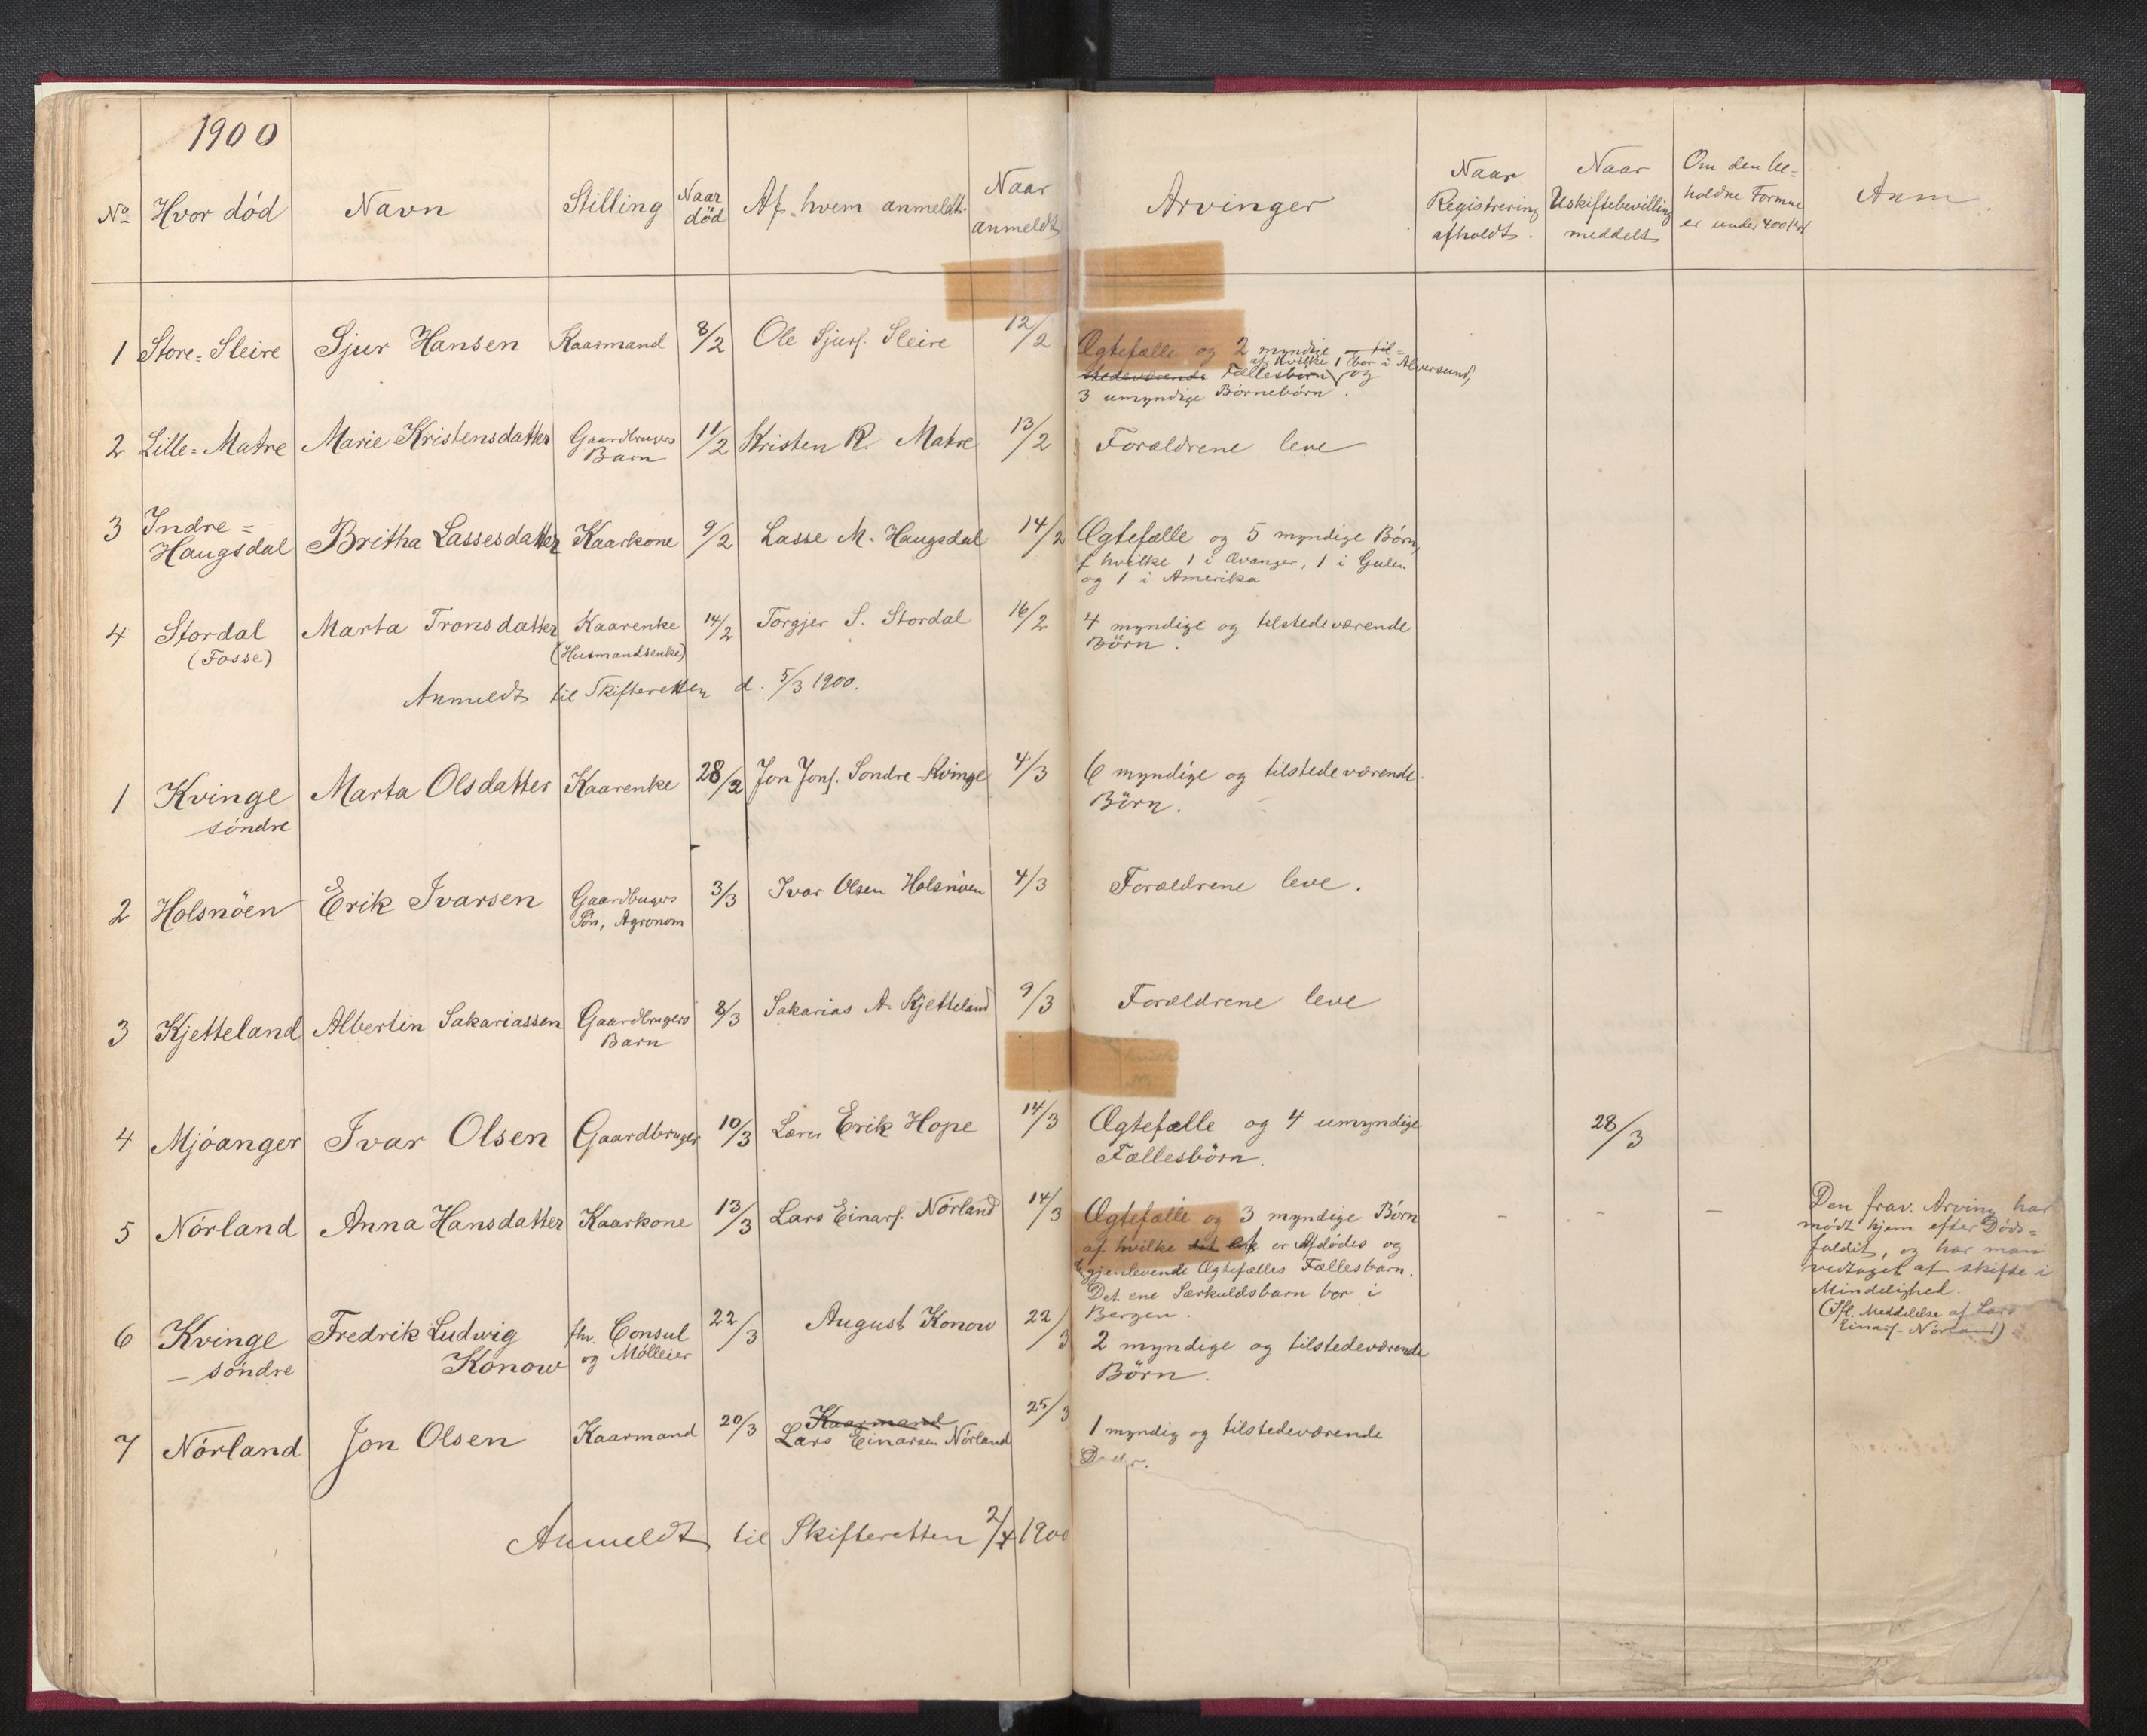 1900
No Hvor död Navn Stilling Naar död Af hvem anmeldt. Naar anmeldt Arvinger Naar Registrering afholdt. Naar Uskiftebevilling meddelt Om den beholdne Formue er under 400 Kr Anm.
1 Store-Sleire Sjur Hansen Kaarmand 8/2 Ole Sjurs. Sleire 12/2 Ægtefælle og 2 myndige til=
stedeværende Fællesbørn af hvilke 1 bor i Alversund, og
3 umyndige Börnebörn.
2 Lille=Matre Marie Kristensdatter Gaardbrugers Barn 11/2 Kristen R. Matre 13/2 Forældrene leve
3 Indre=Haugsdal Britha Lassesdatter Kaarkone 9/2 Lasse M. Haugsdal 14/2 Ægtefælle og 5 myndige Börn,
af hvilke 1 i Evanger, 1 i Gulen
og 1 i Amerika
4 Stordal (Fosse) Marta Tronsdatter Kaarenke (Husmandsenke) 14/2 Torgjer S. Stordal 16/2 4 myndige og tilstedeværende
Börn.
Anmeldt til Skifteretten d. 5/3 1900.
1 Kvinge söndre Marta Olsdatter Kaarenke 28/2 Jon Jons. Söndre-Kvinge 4/3 6 myndige og tilstedeværende
Börn.
2 Holsnöen Erik Ivarsen Gaardbrugers Sön, Agronom 3/3 Ivar Olsen Holsnöen 4/3 Forældrene leve.
3 Kjetteland Albertin Sakariassen Gaardbrugers Barn 8/3 Sakarias A. Kjetteland 9/3 Forældrene leve
4 Mjöanger Ivar Olsen Gaardbruger 10/3 Lærer Erik Hope 14/3 Ægtefælle og 4 umyndige
Fællesbörn. 28/3
5 Nörland Anna Hansdatter Kaarkone 13/3 Lars Einars. Nörland 14/3 Ægtefælle og 3 myndige Börn - - -
af hvilke det er Afdödes og
gjenlevende Ægtefælles Fællesbarn.
Det ene Særkuldsbarn bor i
Bergen.
Den frav. Arving har
mödt hjem efter Döds=
faldet, og har man
vedtaget at skifte i
Mindelighed.
(Ifl. Meddelelse af Lars
Einars. Nörland)
6 Kvinge söndre Fredrik Ludwig Konow fhv. Consul og Mölleier 22/3 August Konow 22/3 2 myndige og tilstedeværende
Börn.
7 Nörland Jon Olsen Kaarmand 20/3 Kaarmand Lars Einarsen Nörland 25/3 1 myndig og tilstedeværende
Anmeldt til Skifteretten 2/4 1900